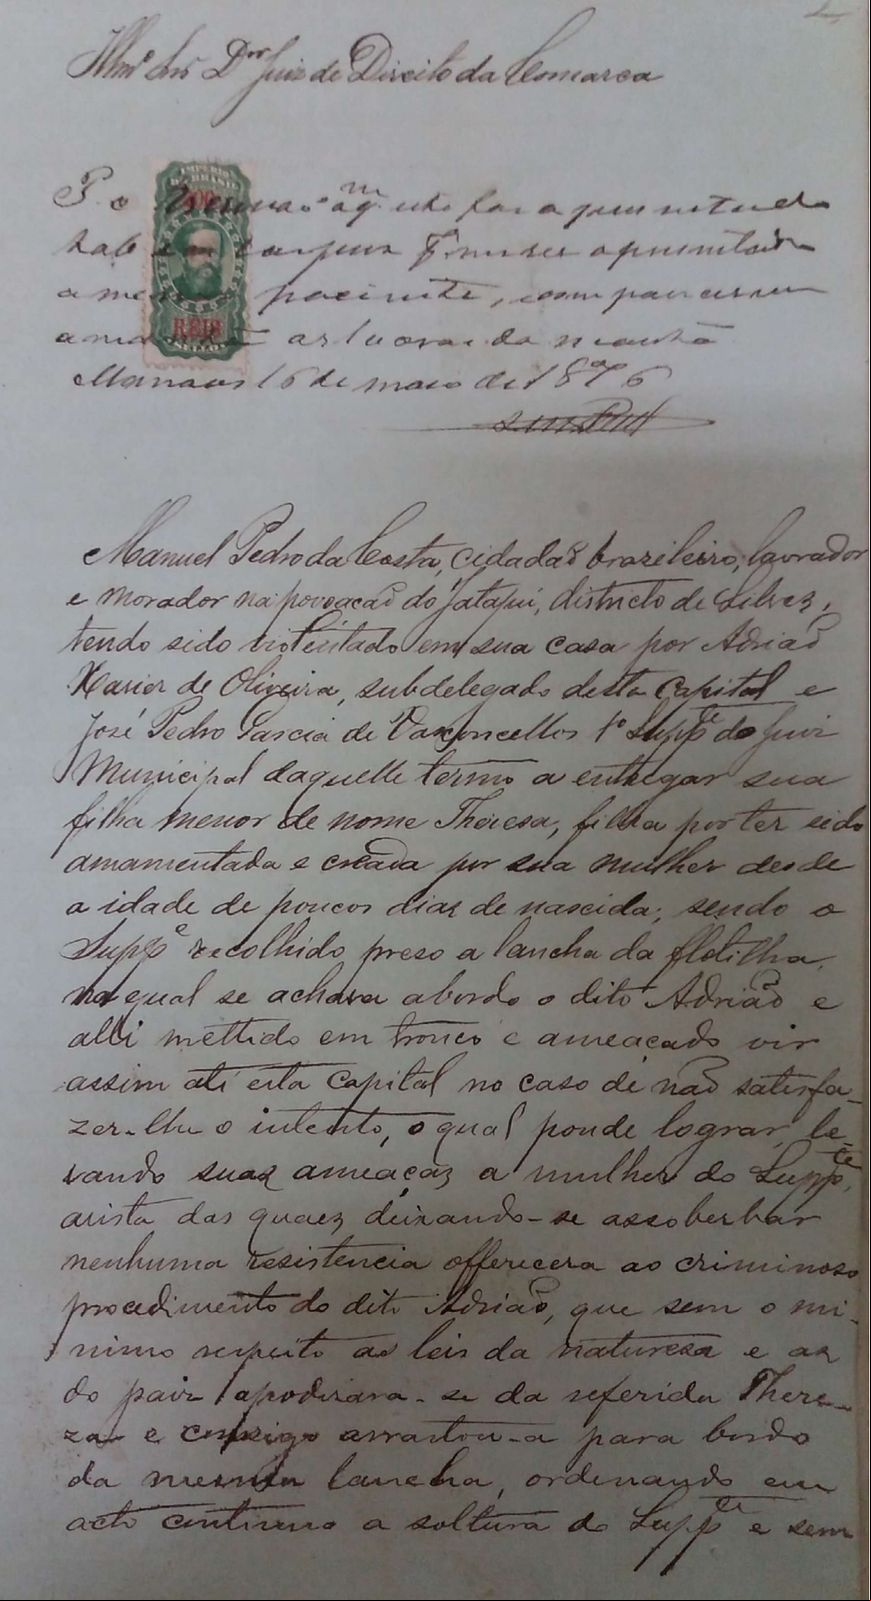 Illmº Snr. Dor Juiz de Direito da Comarca
IMPERIO
DO BRASIL
200
REIS
P. o
a mesma paciente, comparecerem
as horas da manhã
Manaus 16 de maio de 1876
Manuel Pedro da Costa, cidadaõ brazileiro, lavrador
e morador na povoacaõ do Jatapui, districto de Silves,
tendo sido violentado em sua casa por Adriaõ
Xavier de Oliveira, subdelegado desta Capital e
José Pedro Garcia de Vasconcellos 1º Suppte do Juiz
Municipal daquelle termo a entregar sua
filha menor de nome Thereza, filha por ter sido
amamentada e creada por sua mulher desde
a idade de poucos dias de nascida; sendo o
Suppe recolhido preso a lancha da flotilha,
na qual se achava abordo o dito Adriaõ e
alli mettido em tronco e ameaçado vir
assim até esta Capital no caso de naõ satisfa-
zer-lhe o intento, o qual poude lograr, le-
vando suas ameaças a mulher do Suppte,
avista das quaes, deixando-se assoberbar
nenhuma resistencia offerecera ao criminoso
procedimento do dito Adriaõ, que sem o mi-
nimo respeito as leis da natureza e as
do paiz apoderara-se da referida There-
za e comsigo arrastou-a para bordo
da mesma lancha, ordenando em
acto continuo a soltura do Suppte e sem